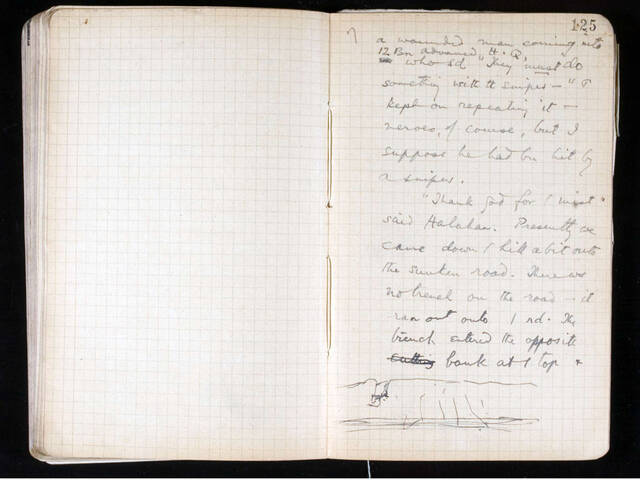 125
a wounded man coming into
12 Bn advanced H.Q.
who sd "They must do
something with th snipers —" &
kept on repeating it —
nerves, of course, but I
suppose he had bn hit by
a sniper.
"Thank God for / mist"
said Halahan. Presently we
came down / hill a bit onto
the sunken road. There was
no trench on the road – it
ran out onto / rd. The
trench entered the opposite
cutting bank at / top &